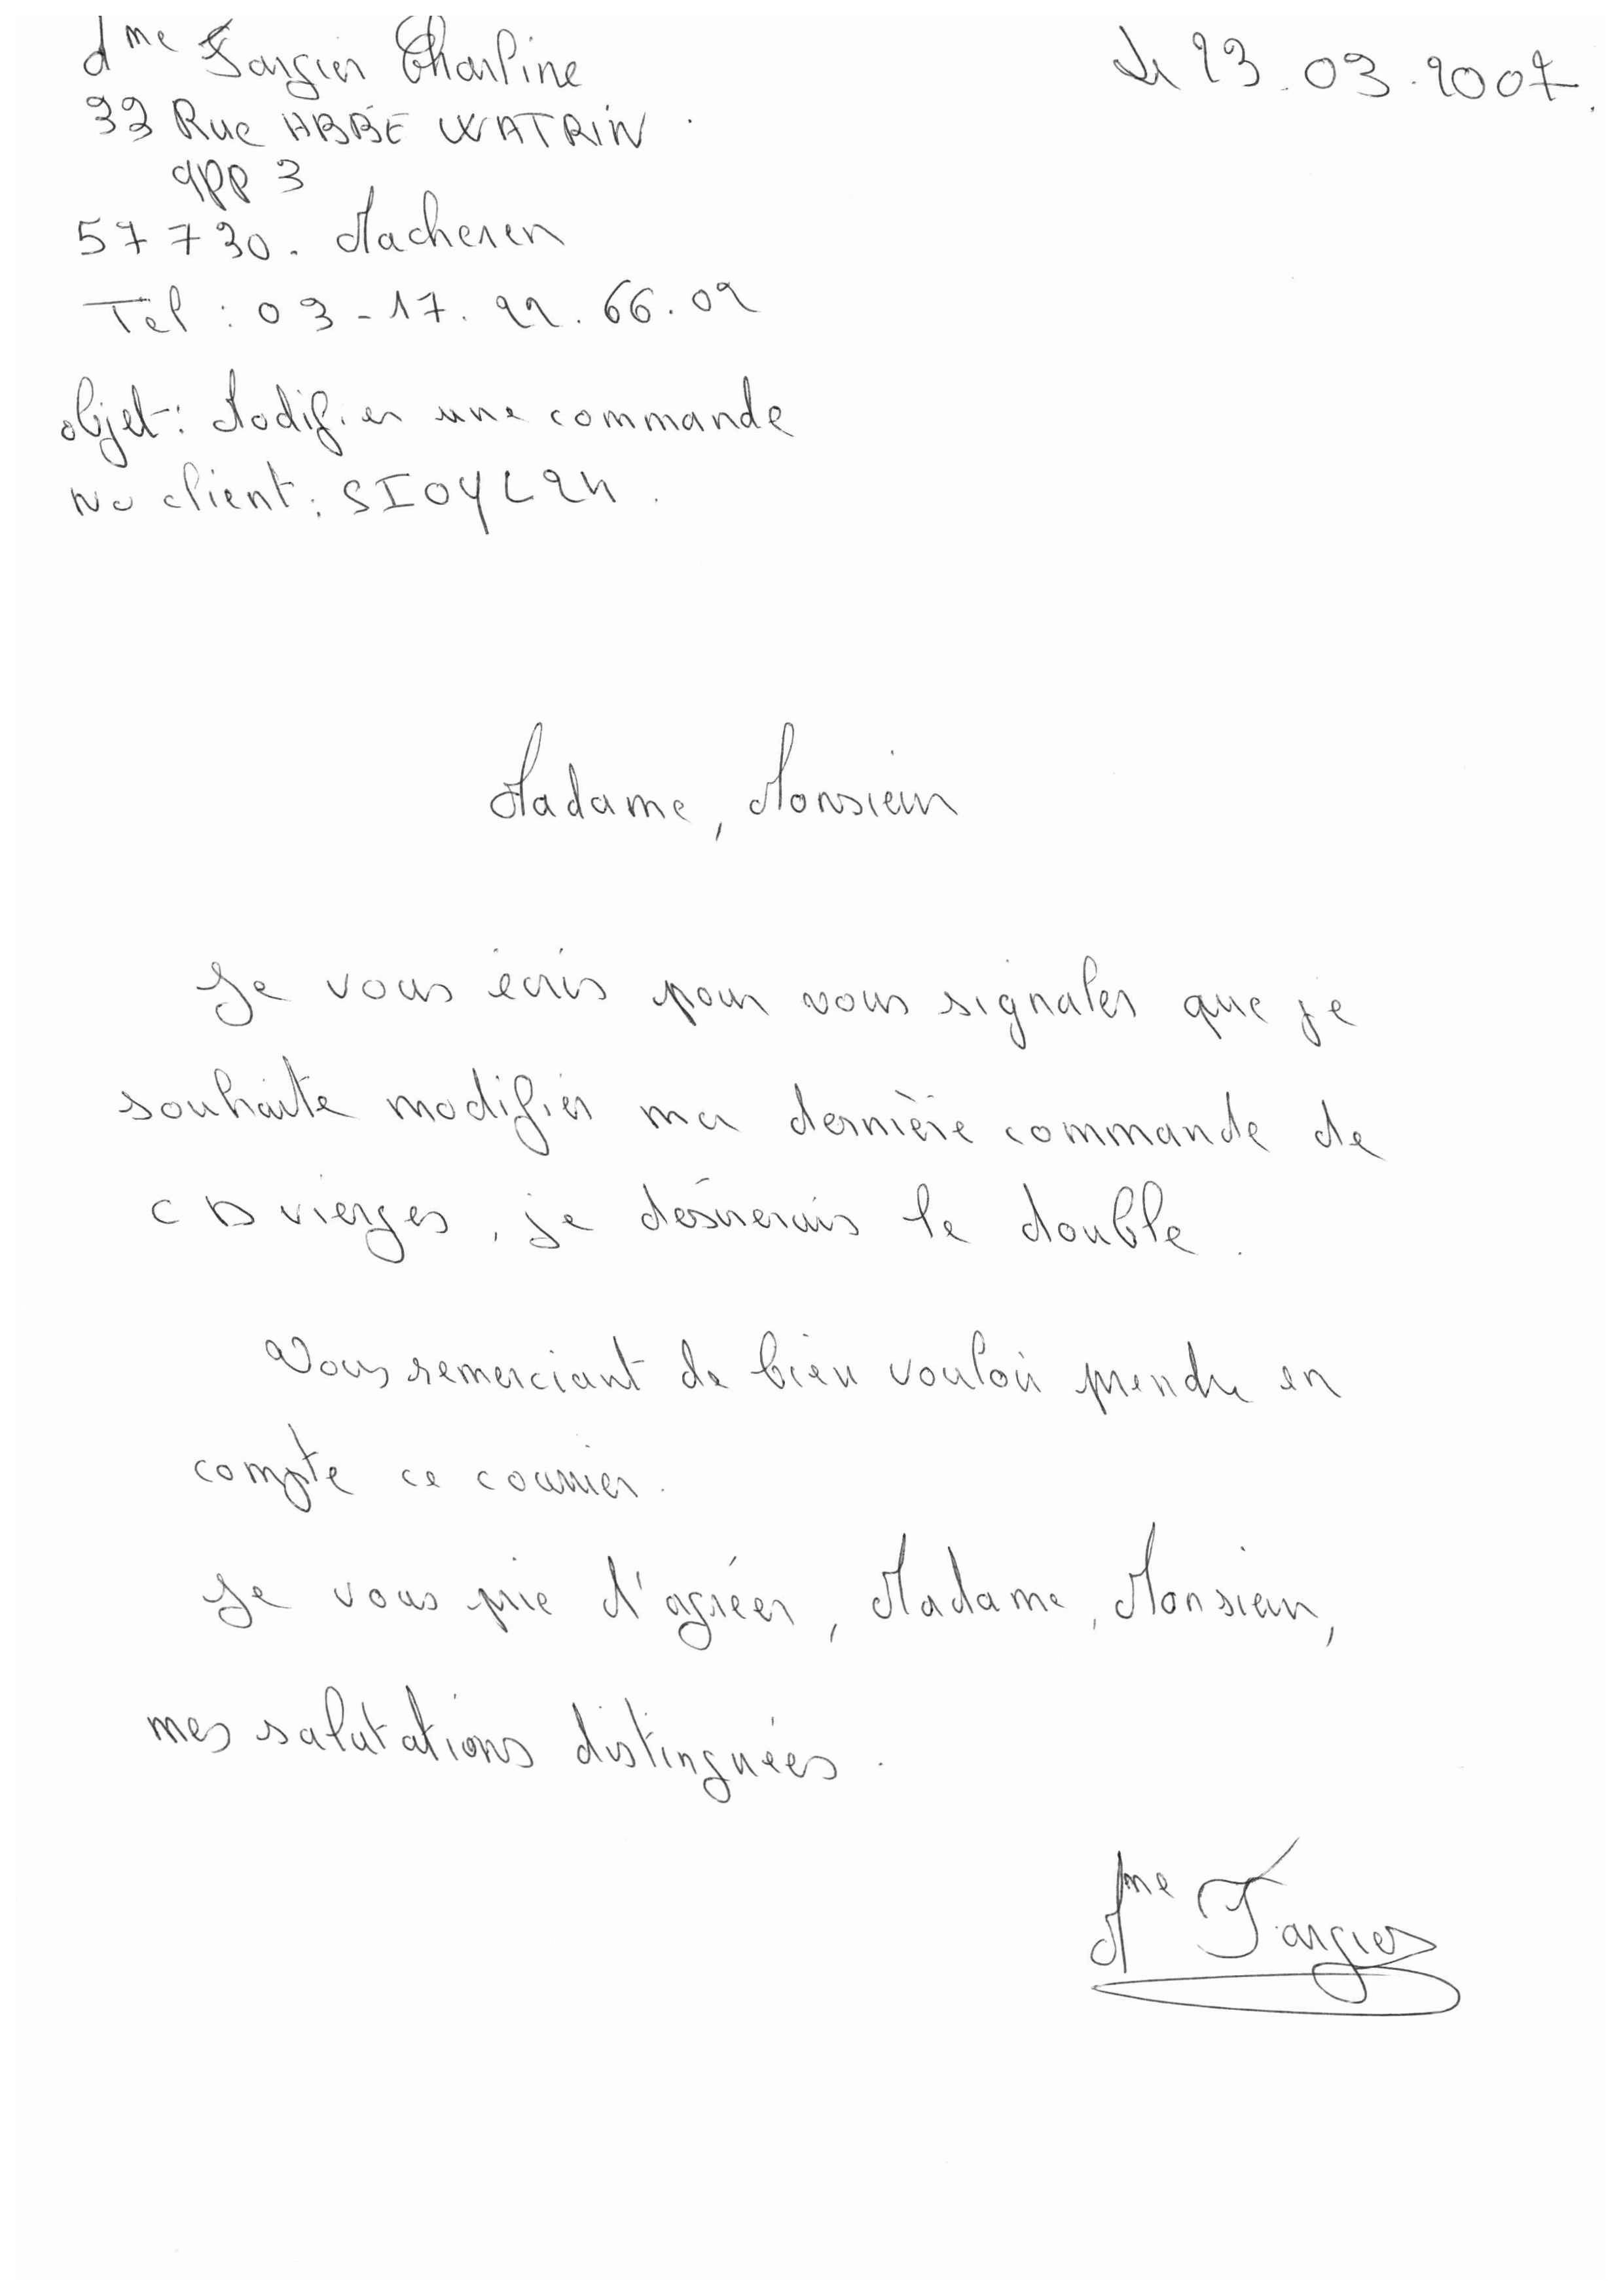 Mme Fargier Charline
Le 23.03.2007.
33 Rue ABBÉ WATRIN.
app 3
57730. Macheren
Tel : 03-17.22.66.02
objet : Modifier une commande
No client : SIOYL24.
Madame, Monsieur
Je vous écris pour vous signaler que je
souhaite modifier ma dernière commande de
CD vierges, je désirerais le double.
Vous remerciant de bien vouloir prendre en
compte ce courrier.
Je vous prie d'agréer, Madame, Monsieur,
mes salutations distinguées.
Mme Fargier